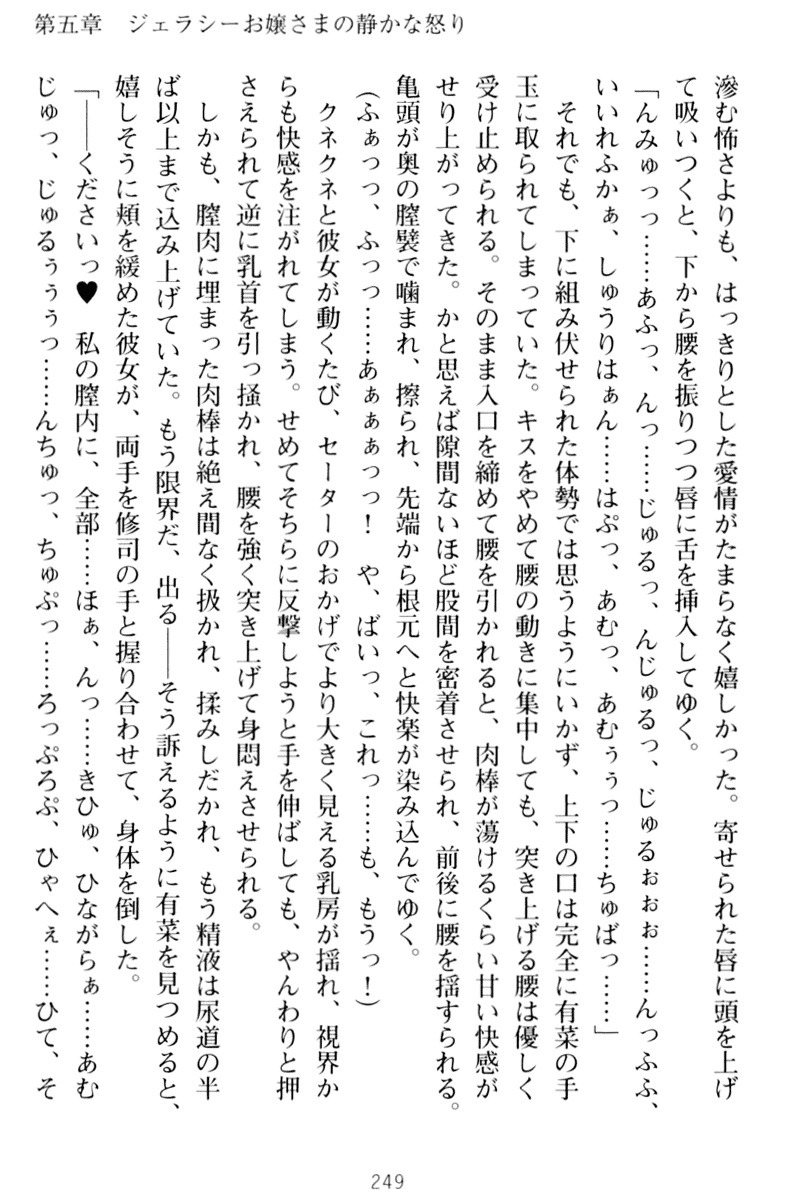 第五章　ジェラシーお嬢さまの静かな怒り
滲む怖さよりも、はっきりとした愛情がたまらなく嬉しかった。寄せられた唇に頭を上げ
て吸いつくと、下から腰を振りつつ唇に舌を挿入してゆく。
「んみゅっっ……あふっ、んっ……じゅるっ、んじゅるっ、じゅるぉぉぉ……んっふふ、
いいれふかぁ、しゅうりはぁん……はぷっ、あむっ、あむぅぅっ……ちゅばっ……」
それでも、下に組み伏せられた体勢では思うようにいかず、上下の口は完全に有菜の手
玉に取られてしまっていた。キスをやめて腰の動きに集中しても、突き上げる腰は優しく
受け止められる。そのまま入口を締めて腰を引かれると、肉棒が蕩けるくらい甘い快感が
せり上がってきた。かと思えば隙間ないほど股間を密着させられ、前後に腰を揺すられる。
亀頭が奥の膣襞で噛まれ、擦られ、先端から根元へと快楽が染み込んでゆく。
(ふぁっっ、ふっっ……あぁぁぁっっ！　や、ばいっ、これっ……も、もうっ！)
クネクネと彼女が動くたび、セーターのおかげでより大きく見える乳房が揺れ、視界か
らも快感を注がれてしまう。せめてそちらに反撃しようと手を伸ばしても、やんわりと押
さえられて逆に乳首を引っ掻かれ、腰を強く突き上げて身悶えさせられる。
しかも、膣肉に埋まった肉棒は絶え間なく扱かれ、揉みしだかれ、もう精液は尿道の半
ば以上まで込み上げていた。もう限界だ、出る――そう訴えるように有菜を見つめると、
嬉しそうに頬を緩めた彼女が、両手を修司の手と握り合わせて、身体を倒した。
「――くださいっ♥　私の膣内に、全部……ほぁ、んっ……きひゅ、ひながらぁ……あむ
じゅっ、じゅるぅぅぅっ……んちゅっ、ちゅぷっ……ろっぷろぷ、ひゃへぇ……ひて、そ
249